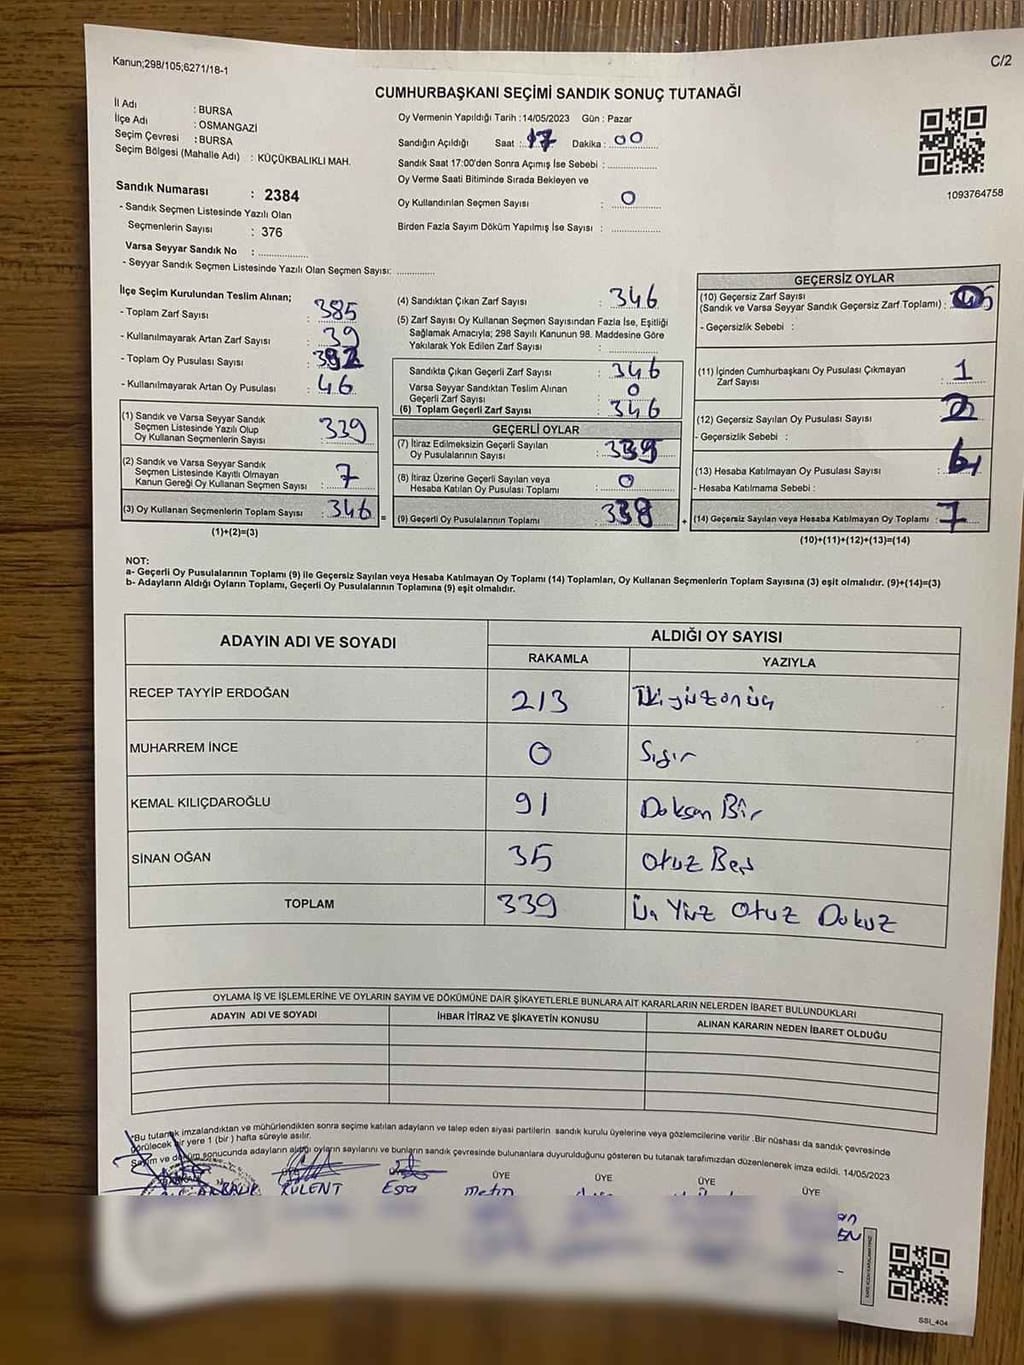 Kanun;298/105;6271/18-1
C/2
CUMHURBAŞKANI SEÇİMİ SANDIK SONUÇ TUTANAĞI
İl Adı : BURSA
İlçe Adı : OSMANGAZİ
Seçim Çevresi : BURSA
Seçim Bölgesi (Mahalle Adı) : KÜÇÜKBALIKLI MAH.
Sandık Numarası : 2384
- Sandık Seçmen Listesinde Yazılı Olan
Seçmenlerin Sayısı : 376
Varsa Seyyar Sandık No :
- Seyyar Sandık Seçmen Listesinde Yazılı Olan Seçmen Sayısı:
Oy Vermenin Yapıldığı Tarih :14/05/2023 Gün : Pazar
Sandığın Açıldığı Saat : 17 Dakika : 00
Sandık Saat 17:00'den Sonra Açımış İse Sebebi :
Oy Verme Saati Bitiminde Sırada Bekleyen ve
Oy Kullandırılan Seçmen Sayısı : 0
Birden Fazla Sayım Döküm Yapılmış İse Sayısı :
1093764758
İlçe Seçim Kurulundan Teslim Alınan;
- Toplam Zarf Sayısı : 385
- Kullanılmayarak Artan Zarf Sayısı : 39
- Toplam Oy Pusulası Sayısı :
- Kullanılmayarak Artan Oy Pusulası : 46
(1) Sandık ve Varsa Seyyar Sandık
Seçmen Listesinde Yazılı Olup
Oy Kullanan Seçmenlerin Sayısı : 339
(2) Sandık ve Varsa Seyyar Sandık
Seçmen Listesinde Kayıtlı Olmayan
Kanun Gereği Oy Kullanan Seçmen Sayısı : 7
(3) Oy Kullanan Seçmenlerin Toplam Sayısı : 346
(1)+(2)=(3)
(4) Sandıktan Çıkan Zarf Sayısı : 346
(5) Zarf Sayısı Oy Kullanan Seçmen Sayısından Fazla İse, Eşitliği
Sağlamak Amacıyla; 298 Sayılı Kanunun 98. Maddesine Göre
Yakılarak Yok Edilen Zarf Sayısı :
Sandıkta Çıkan Geçerli Zarf Sayısı : 346
Varsa Seyyar Sandıktan Teslim Alınan
Geçerli Zarf Sayısı : 0
(6) Toplam Geçerli Zarf Sayısı : 346
GEÇERLİ OYLAR
(7) İtiraz Edilmeksizin Geçerli Sayılan
Oy Pusulalarının Sayısı : 339
(8) İtiraz Üzerine Geçerli Sayılan veya
Hesaba Katılan Oy Pusulası Toplamı : 0
(9) Geçerli Oy Pusulalarının Toplamı :
=
+
GEÇERSİZ OYLAR
(10) Geçersiz Zarf Sayısı
(Sandık ve Varsa Seyyar Sandık Geçersiz Zarf Toplamı) :
- Geçersizlik Sebebi :
(11) İçinden Cumhurbaşkanı Oy Pusulası Çıkmayan
Zarf Sayısı : 1
(12) Geçersiz Sayılan Oy Pusulası Sayısı :
- Geçersizlik Sebebi :
(13) Hesaba Katılmayan Oy Pusulası Sayısı :
- Hesaba Katılmama Sebebi :
(14) Geçersiz Sayılan veya Hesaba Katılmayan Oy Toplamı : 7
(10)+(11)+(12)+(13)=(14)
NOT:
a- Geçerli Oy Pusulalarının Toplamı (9) ile Geçersiz Sayılan veya Hesaba Katılmayan Oy Toplamı (14) Toplamları, Oy Kullanan Seçmenlerin Toplam Sayısına (3) eşit olmalıdır. (9)+(14)=(3)
b- Adayların Aldığı Oyların Toplamı, Geçerli Oy Pusulalarının Toplamına (9) eşit olmalıdır.
ADAYIN ADI VE SOYADI ALDIĞI OY SAYISI
RAKAMLA YAZIYLA
RECEP TAYYİP ERDOĞAN 213 İkiyüzonüç
MUHARREM İNCE 0 Sıfır
KEMAL KILIÇDAROĞLU 91 Doksan Bir
SİNAN OĞAN 35 Otuz Beş
TOPLAM 339 Üç Yüz Otuz Dokuz
OYLAMA İŞ VE İŞLEMLERİNE VE OYLARIN SAYIM VE DÖKÜMÜNE DAİR ŞİKAYETLERLE BUNLARA AİT KARARLARIN NELERDEN İBARET BULUNDUKLARI
ADAYIN ADI VE SOYADI İHBAR İTİRAZ VE ŞİKAYETİN KONUSU ALINAN KARARIN NEDEN İBARET OLDUĞU
*Bu tutanak imzalandıktan ve mühürlendikten sonra seçime katılan adayların ve talep eden siyasi partilerin sandık kurulu üyelerine veya gözlemcilerine verilir .Bir nüshası da sandık çevresinde
görülecek bir yere 1 (bir ) hafta süreyle asılır.
Sayım ve döküm sonucunda adayların aldığı oyların sayılarını ve bunların sandık çevresinde bulunanlara duyurulduğunu gösteren bu tutanak tarafımızdan düzenlenerek imza edildi. 14/05/2023
ÜYE ÜYE ÜYE ÜYE
BÜLENT Esra Metin
SSİ_404